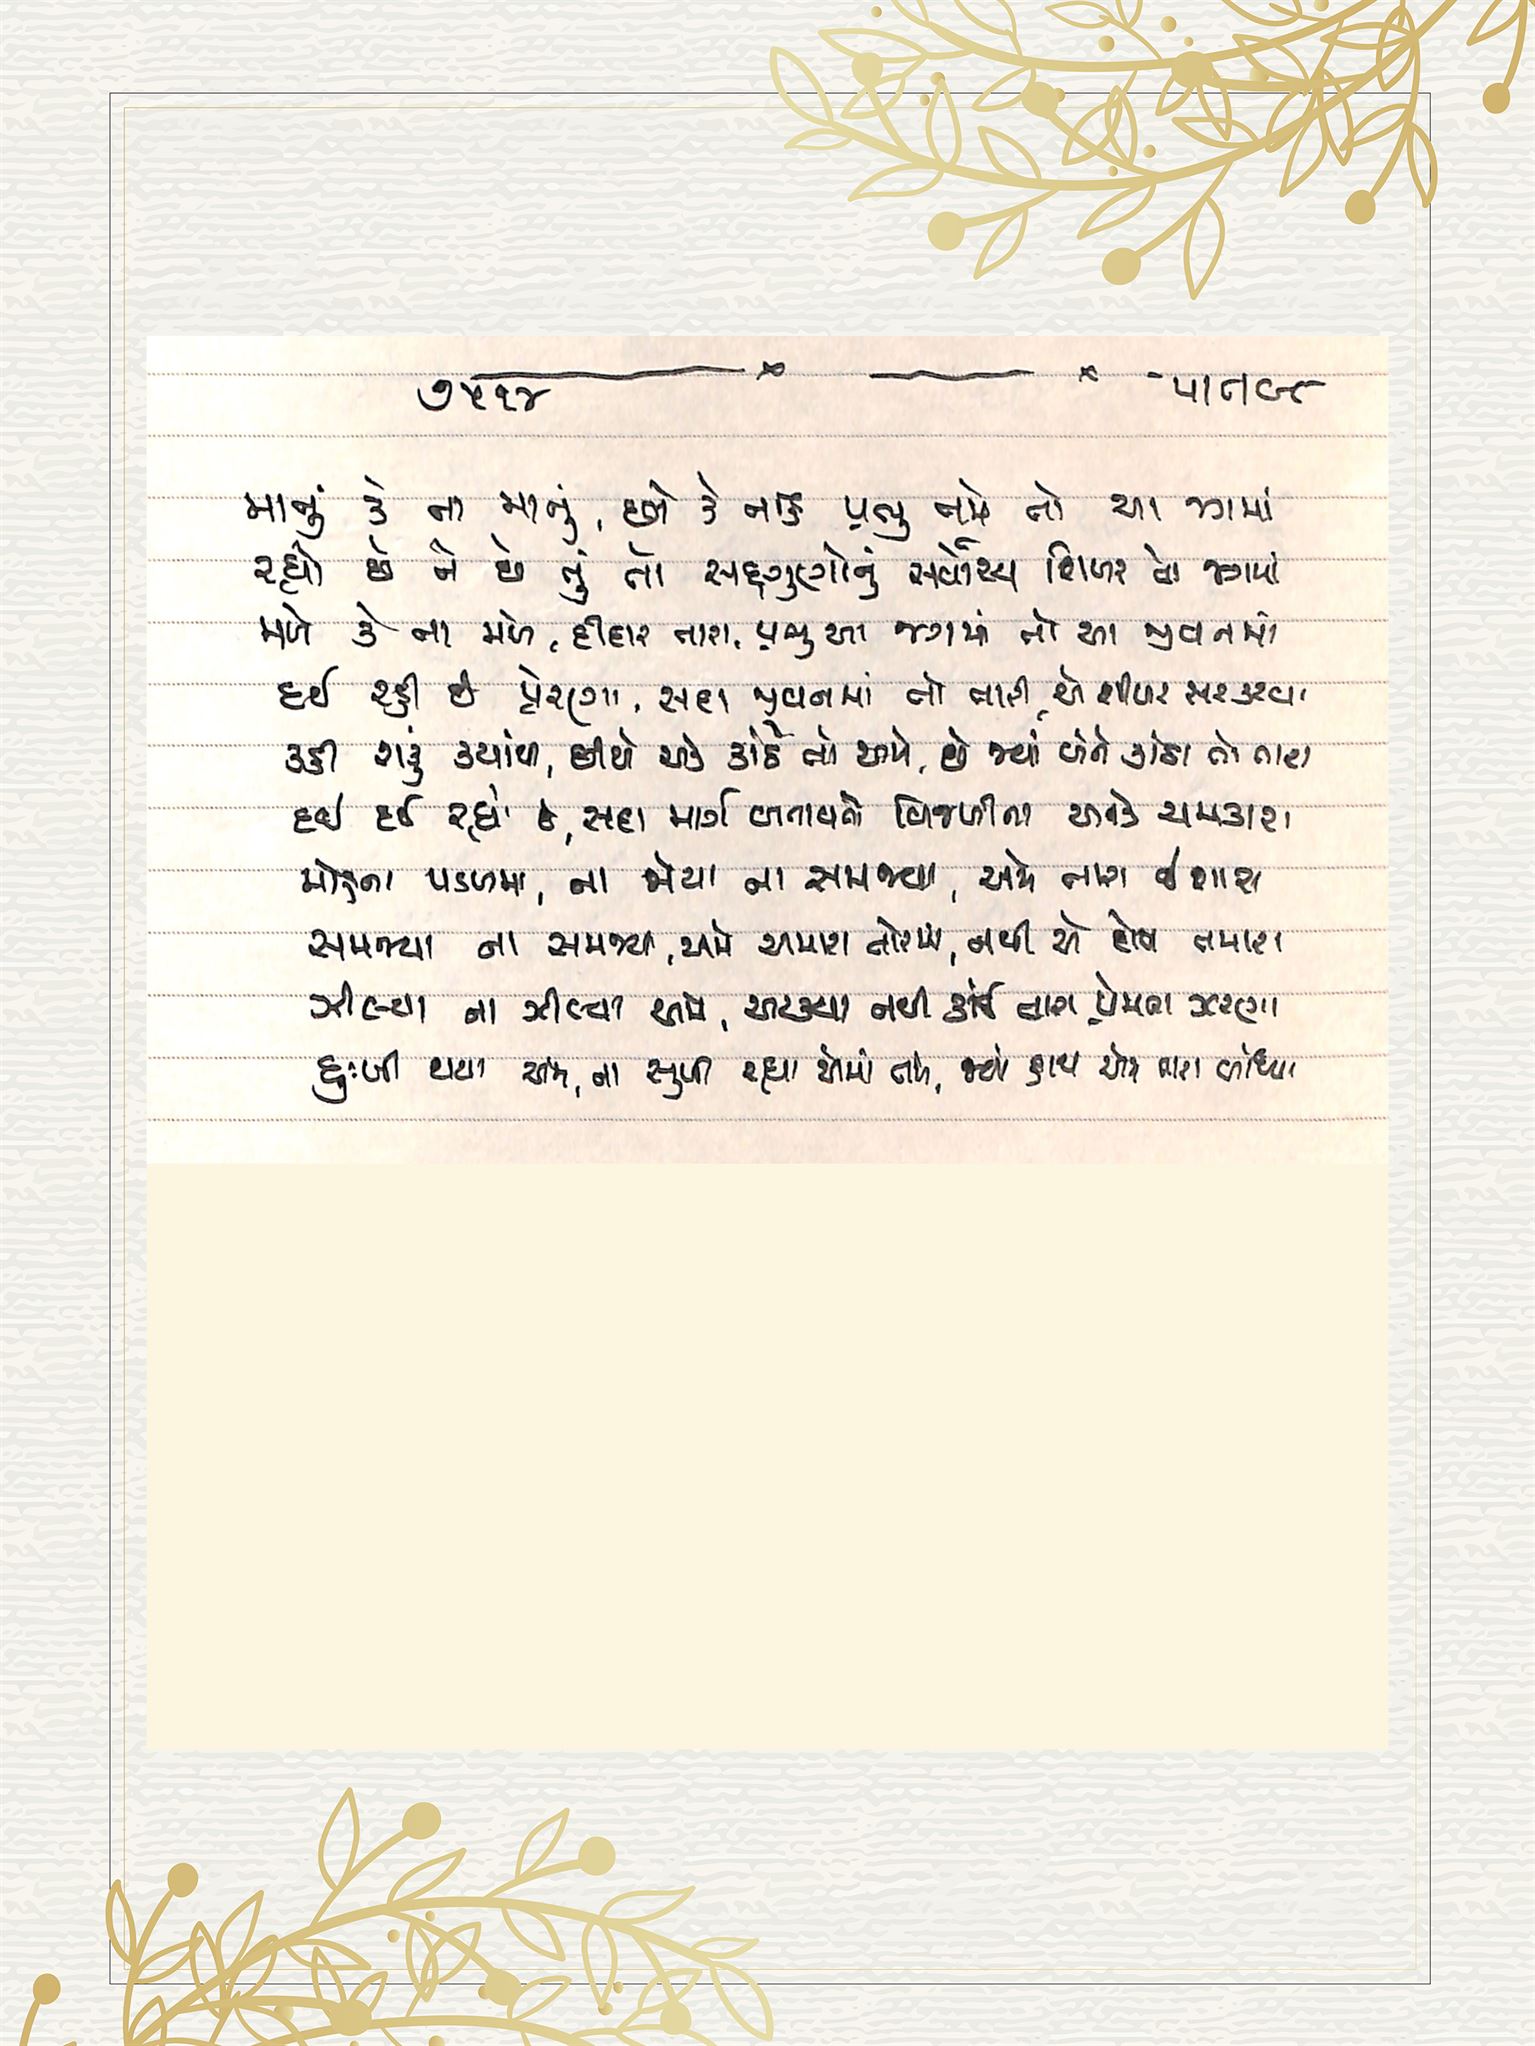 ૭૫૧૪
માનું કે ના માનું, છો કે નહિ પ્રભુ તમે તો આ જગમાં
રહ્યો છે ને છે તું તો સદ્દગુણોનું સર્વોચ્ચ શિખર તો જગમાં
મળે કે ના મળે, દીદાર તારા, પ્રભુ આ જગમાં તો આ જીવનમાં
દઈ રહી છે પ્રેરણા, સદા જીવનમાં તો તારી, એ શીખર સર કરવા
કહી શકું ક્યાંથી, છીએ એક કાંઠે તો અમે, છે જ્યાં બંને કાંઠા તો તારા
દઈ દઈ રહ્યો છે, સદા માર્ગ બતાવતો વિજળીના અનેક ચમકારા
મોહના પડળમાં, ના જોયા ના સમજ્યા, અમે તારા ઈશારા
સમજ્યા ના સમજ્યા, અમે અમારા તોરમાં, નથી એ દોષ તમારા
ઝીલ્યા ના ઝીલ્યા અમે, અટક્યા નથી કાંઈ તારા પ્રેમના ઝરણા
દુઃખી થયા અમે, ના સુખી રહ્યા એમાં તમે, જ્યાં હાથ એમ તારા બાંધ્યા